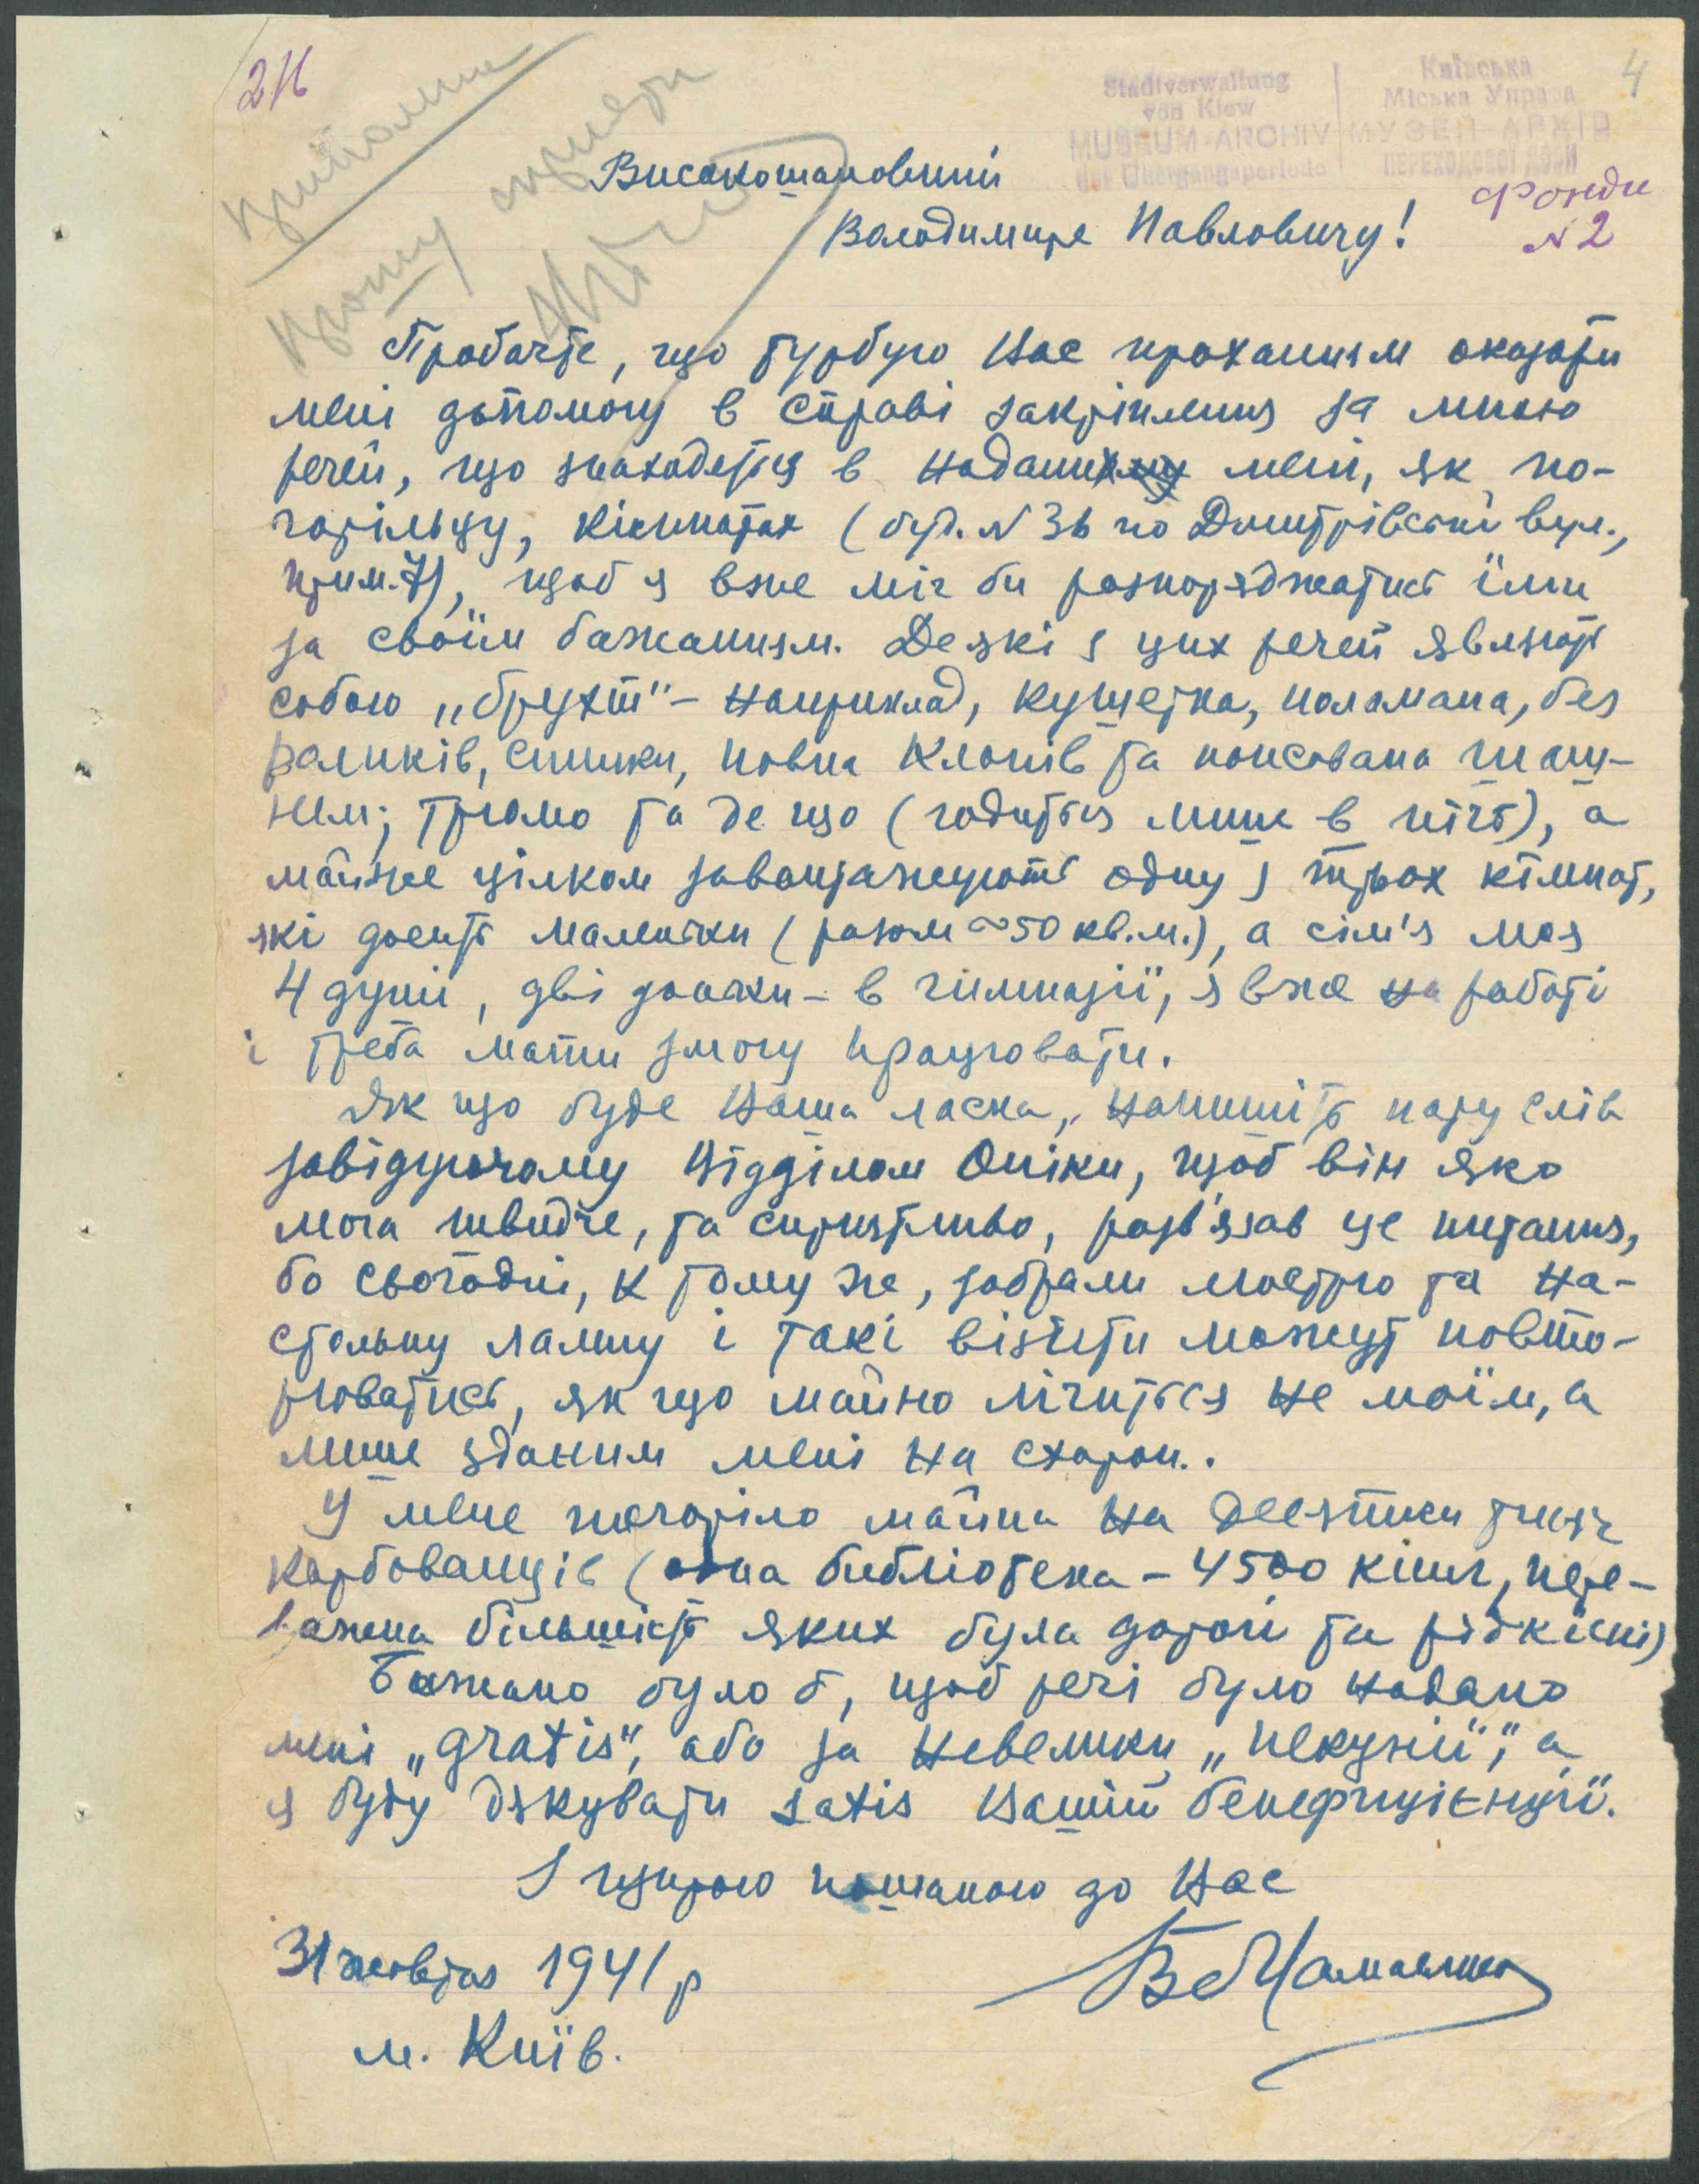 216
4
Stadtverwaltung
von Kiew
MUSEUM-ARCHIV
der Übergangsperiode
Київська
Міська Управа
МУЗЕЙ-АРХІВ
ПЕРЕХОДОВОЇ ДОБИ
Фонди
N 2
Прошу
Високошановний
Володимире Павловичу!
Пробачте, що турбую Вас проханням оказати
мені допомогу в справі закріплення за мною
речей, що знаходяться в наданих мені, як по-
горільцу, кімнатах (буд. N 36 по Дмитрівській вул.,
прим. 7), щоб я вже міг би розпоряджатись їми
за своїм бажанням. Деякі з цих речей являють
собою „брухт" – наприклад, кушетка, поламана, без
роликів, спинки, повна клопів та попсована
трюмо та де що (годиться лише в піч), а
майже цілком завантажують одну з трьох кімнат,
які досить маленькі (разом ~50 кв.м.), а сім'я моя
4 душі, дві дочки – в гімназії, я вже на роботі
і треба мати змогу працювати.
Як що буде Ваша ласка, напишіть пару слів
завідуючому Відділом Опіки, щоб він яко
мога швидче, та сприятливо, розв'язав це питання,
бо сьогодні, к тому же, забрали люстро та на-
стольну лампу і такі візити можуть повто-
рюватись, як що майно лічиться не моїм, а
лише зданим мені на схорон..
У мене погоріло майна на десятки тисяч
карбованців (одна бібліотека – 4500 книг, пере-
важна більшість яких була дорогі та рідкісні)
Бажано було б, щоб речі було надано
мені „gratis", або за невелику „пекунії", а
я буду дякувати satis Вашій бенефиціенції.
З щирою пошаною до Вас
31 жовтня 1941 р
м. Київ.